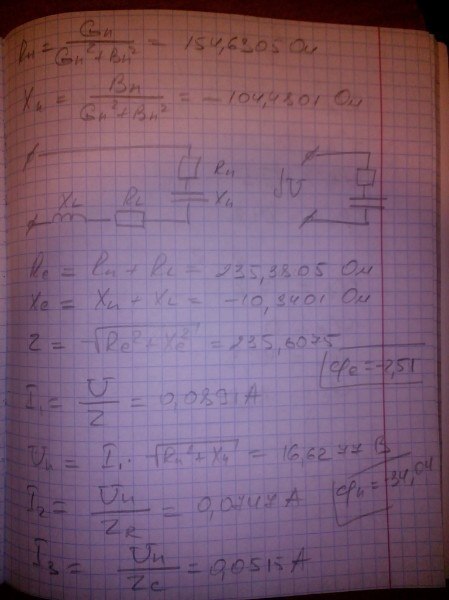 Rн = Gн / Gн² + Bн² = 154,6305 Ом
Xн = Bн / Gн² + Bн² = -104,4801 Ом
Rн
Xн
XL RL
U
Rc = Rн + RL = 235,3805 Ом
Xc = Xн + XL = -10,3401 Ом
Z = √Rc² + Xc² = 235,6075
φc = -2,51
I₁ = U / Z = 0,0891 A
Uн = I₁ · √Rн² + Xн² = 16,6277 В
φн = -34,04
I₂ = Uн / ZR = 0,0747 A
I₃ = Uн / Zc = 0,0515 A